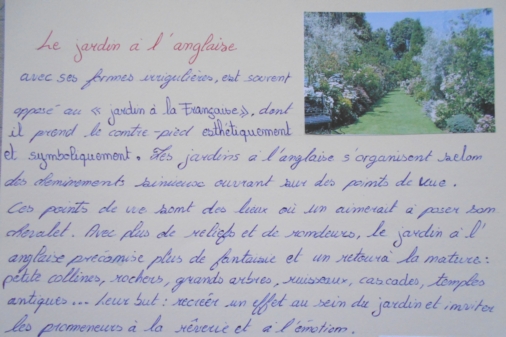 Le jardin à l'anglaise
avec ses formes irrégulières, est souvent
opposé au « jardin à la Française », dont
il prend le contre-pied esthétiquement
et symboliquement. Les jardins à l'anglaise s'organisent selon
des cheminements sinueux ouvrant sur des points de vue.
Ces points de vue sont des lieux où un aimerait à poser son
chevalet. Avec plus de reliefs et de rondeurs, le jardin à l'
anglaise préconise plus de fantaisie et un retour à la nature :
petite collines, rochers, grands arbres, ruisseaux, cascades, temples
antiques... Leur but : recréer un effet au sein du jardin et inviter
les promeneurs à la rêverie et à l'émotion.